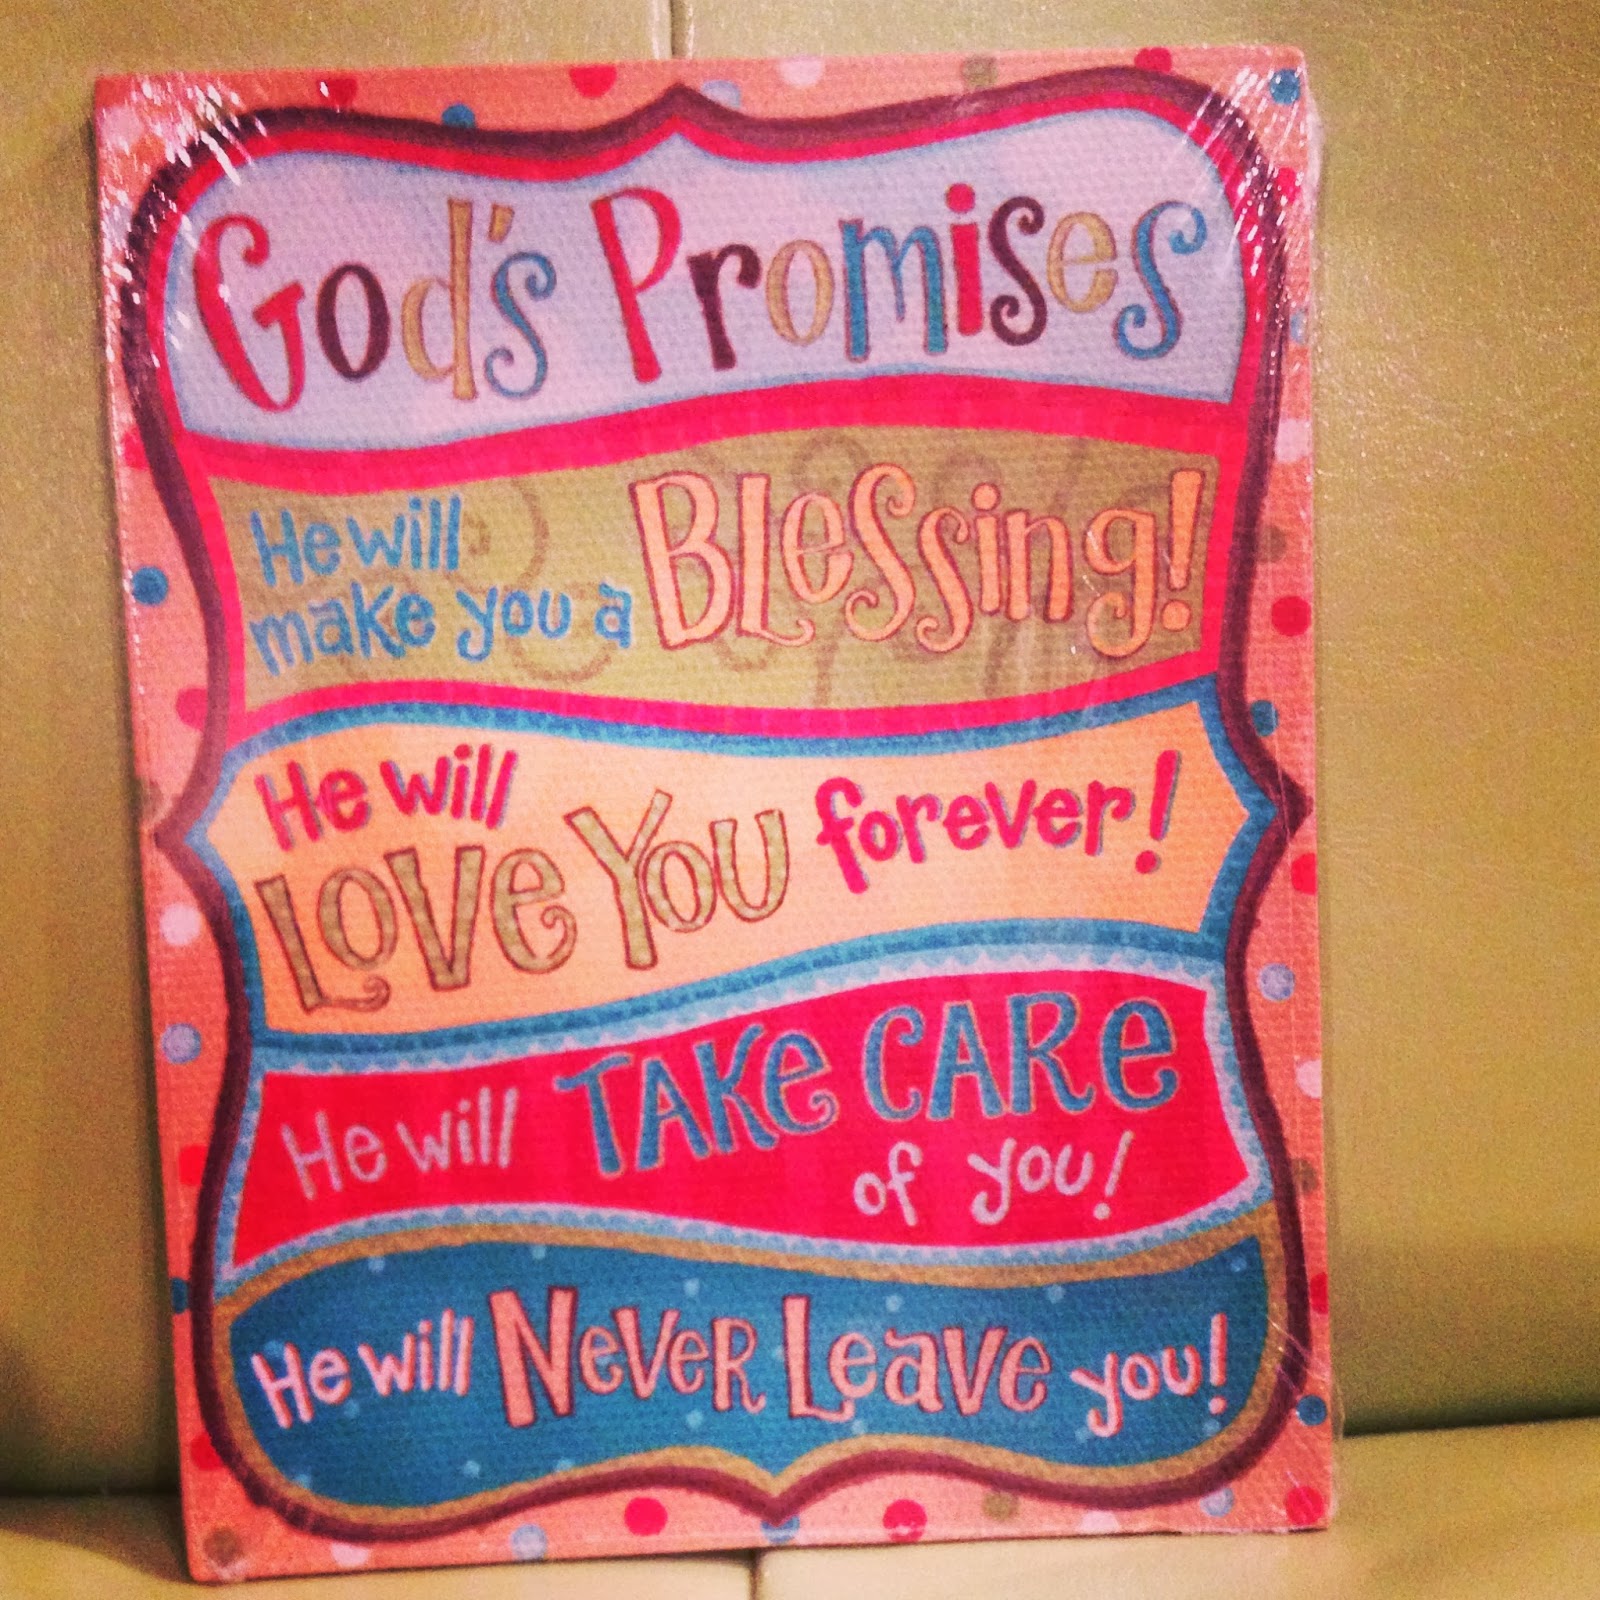 God's Promises
He will
make you a Blessing!
He will
Love You forever!
He will TAKe CARe
of you!
He will Never Leave you!